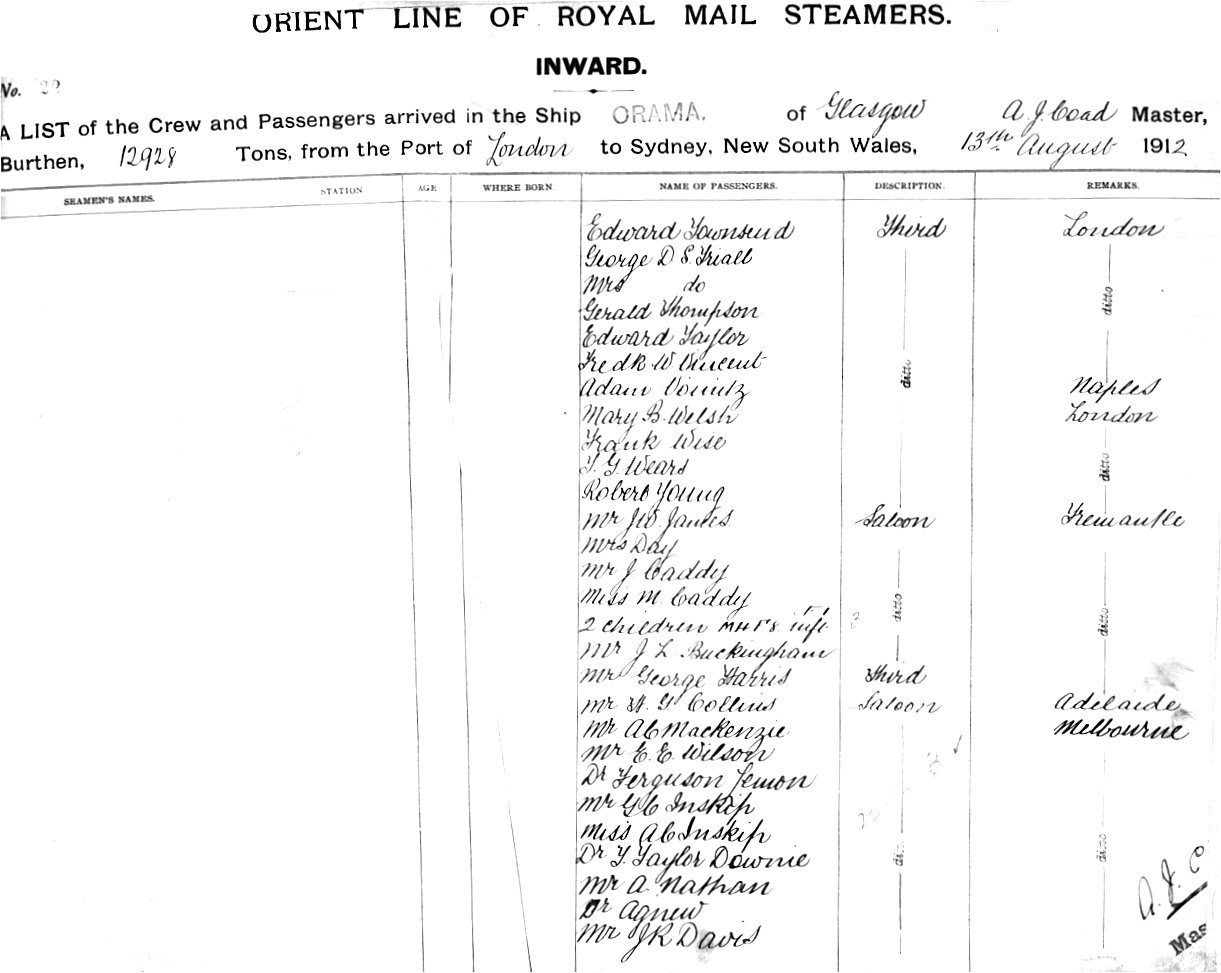 ORIENT LINE OF ROYAL MAIL STEAMERS.
INWARD.
No. 22
A LIST of the Crew and Passengers arrived in the Ship ORAMA. of Glasgow A. J. Coad Master,
Burthen, 12928 Tons, from the Port of London to Sydney, New South Wales, 13th August 1912
SEAMEN'S NAMES. STATION AGE WHERE BORN NAME OF PASSENGERS. DESCRIPTION. REMARKS.
Edward Townsend Third London
George D S
Mrs do ditto
Gerald Thompson
Edward Taylor
Fredk W Vincent ditto
Adam Naples
Mary B. Welsh London
Frank Wise
T. G. Wears ditto
Robert Young
Mr J W. James Saloon Fremantle
Mrs Day
Mr J Caddy
Miss M. Caddy ditto
2 children inft ditto
Mr J L Buckingham
Mr George Harris Third
Mr H. G Collins Saloon Adelaide
Mr A C Mackenzie Melbourne
Mr E. E. Wilson
Dr Ferguson Lemon
Mr G C Inskip
Miss A C Inskip
Dr T. Taylor Downie ditto
Mr A. Nathan
Dr Agnew
Mr J R Davis
A. J. C
Mas